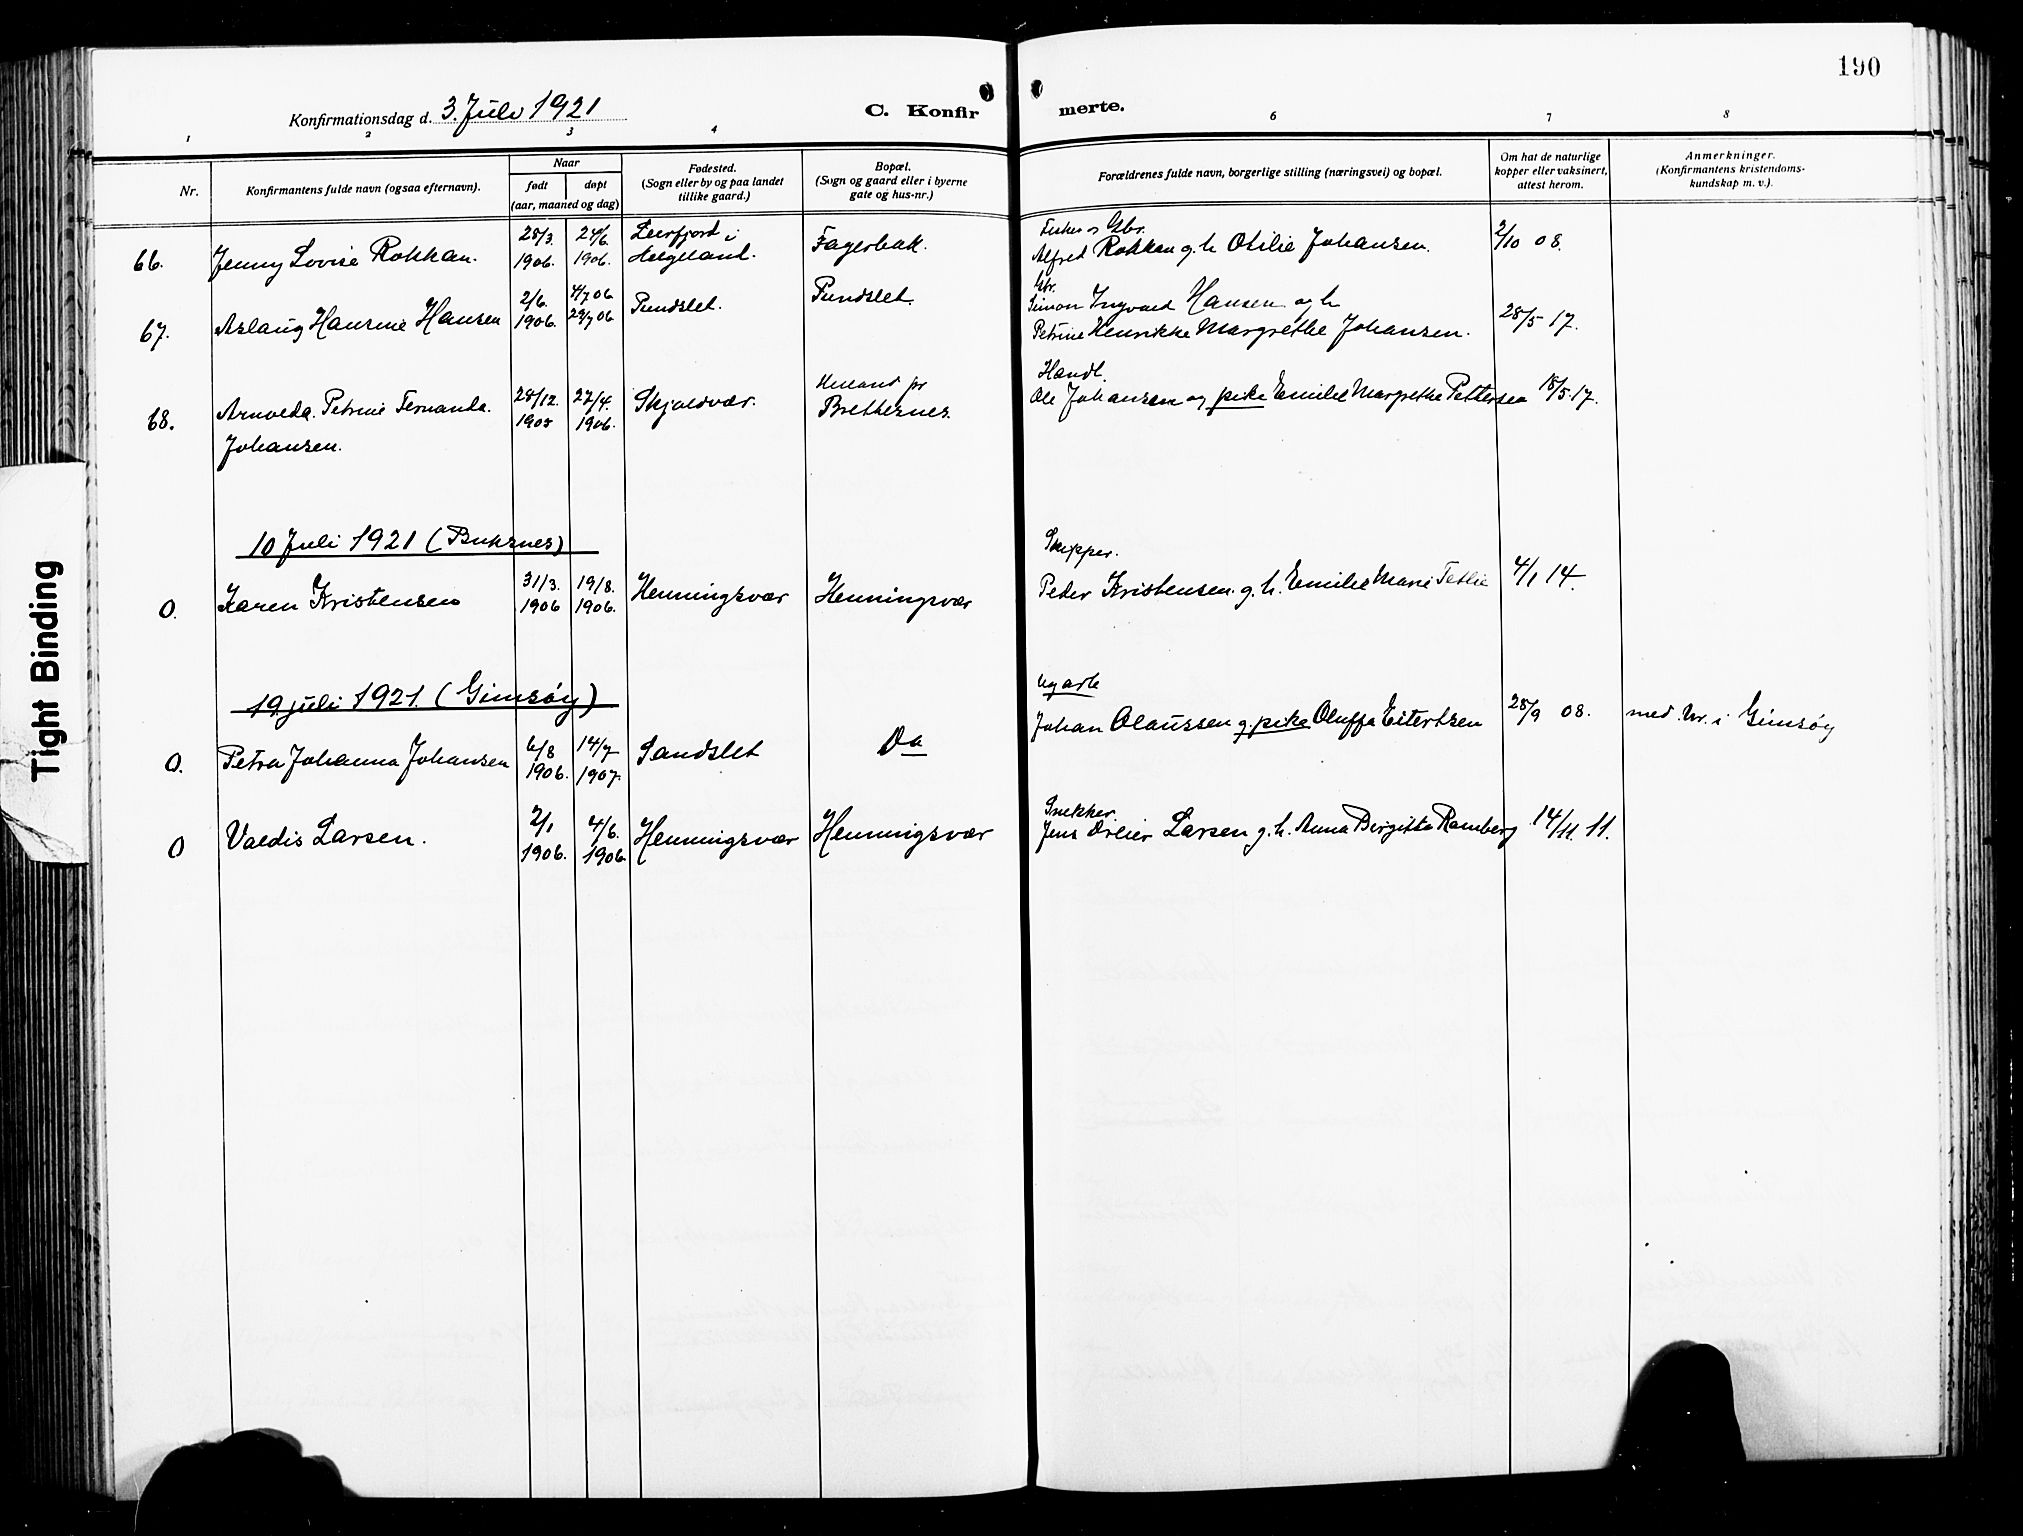 190
Konfirmationsdag d. 3. Juli 1921
C. Konfir merte.
1 2 3 4 6 7 8
Nr.
Konfirmantens fulde navn (ogsaa efternavn).
Naar
født døpt
(aar, maaned og dag)
Fødested.
(Sogn eller by og paa landet
tillike gaard.)
Bopæl.
(Sogn og gaard eller i byerne
gate og hus-nr.)
Forældrenes fulde navn, borgerlige stilling (næringsvei) og bopæl.
Om hat de naturlige
kopper eller vaksinert,
attest herom.
Anmerkninger.
(Konfirmantens kristendoms-
kundskap m. v.).
66. Jenny Lovise Rokkan. 28/3. 1906. 24/6. 1906. Leirfjord i Helgeland. Fagerbak.
Fisker og Gbr.
Alfred Rokkan g. h. Otilie Johansen. 2/10 08.
67. Aslaug Hansine Hansen 2/6. 1906. 4/7 06 29/7 06 Pundslet. Pundslet.
Gbr.
Simon Ingvard Hansen og h.
Petrine Henrikke Margrethe Johansen. 28/5 17.
68. Arnolda. Petrine Fernanda. Johansen. 28/12. 1905 22/4. 1906. Skjoldvær. Brettesnes.
Handl.
Ole Johansen og pike Emilie Margrethe Pettersen 18/5. 17.
10 Juli 1921 (Buksnes)
O. Karen Kristensen 31/3. 1906 19/8. 1906. Henningsvær Henningsvær
Skipper.
Peder Kristensen. g. h. Emilie Marie Tetlie 4/1 14.
19. juli 1921. (Gimsøy)
O. Petra Johanna Johansen 6/8 1906. 14/7 1907. Sandslet Do
Ug arb
Johan Olaussen g. pike Oluffa Eilertsen 28/9 08. med. Nr. i Gimsøy
O Valdis Larsen. 2/1 1906. 4/6. 1906. Henningsvær Henningsvær
Snekker.
Jens Dreier Larsen g. h. Anna Birgitte Ramberg 14/11. 11.
Tight Binding